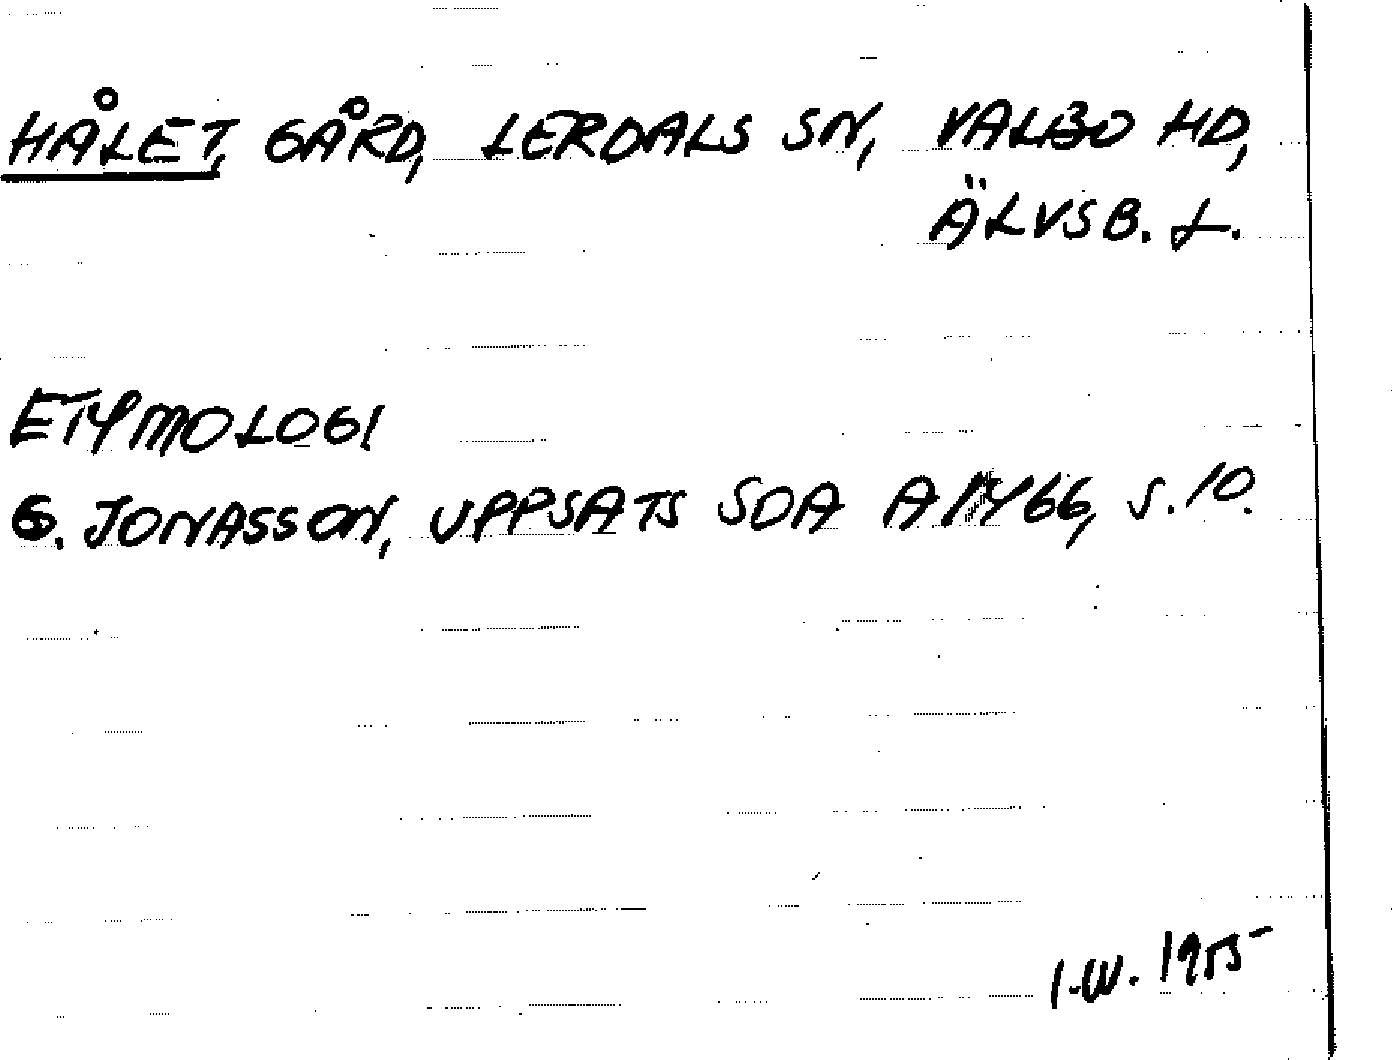 HÅLET, GÅRD, LERDALS SN, VALBO HD,
ÄLVSB. L.
ETYMOLOGI
G. JONASSON, UPPSATS SOA 66, S. 10.
I.W. 1955